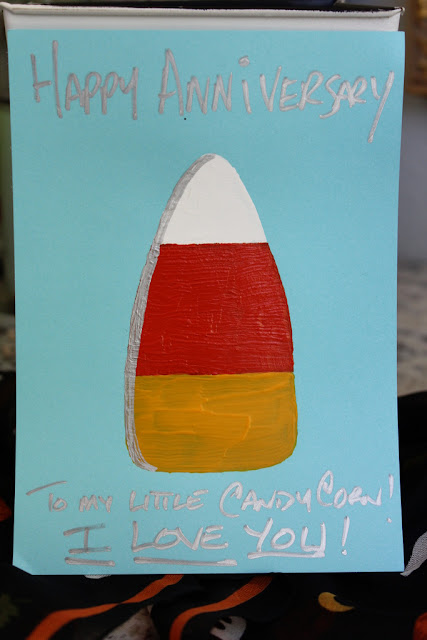 Happy Anniversary
To my little Candy Corn!
I Love You!